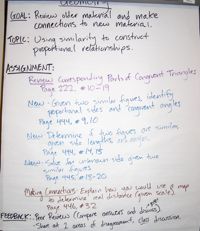 GOAL: Review older material and make
connections to new material.
TOPIC: Using similarity to construct
proportional relationships.
ASSIGNMENT:
Review Corresponding Parts of Congruent Triangles
Page 222, #10-19
New - Given two similar figures, identify
proportional sides and congruent angles
Page 444, #9,10
New Determine if two figures are similar,
given side lengths and angles.
Page 444, #14,15
New - Solve for unknown side given two
similar figures
Page 445, #18-20
Making Connections Explain how you would use a map
to determine real distance (given scale).
Page 446, #32
FEEDBACK: Peer Review (Compare answers and discuss)
Share out 2 areas of disagreement, class discussion